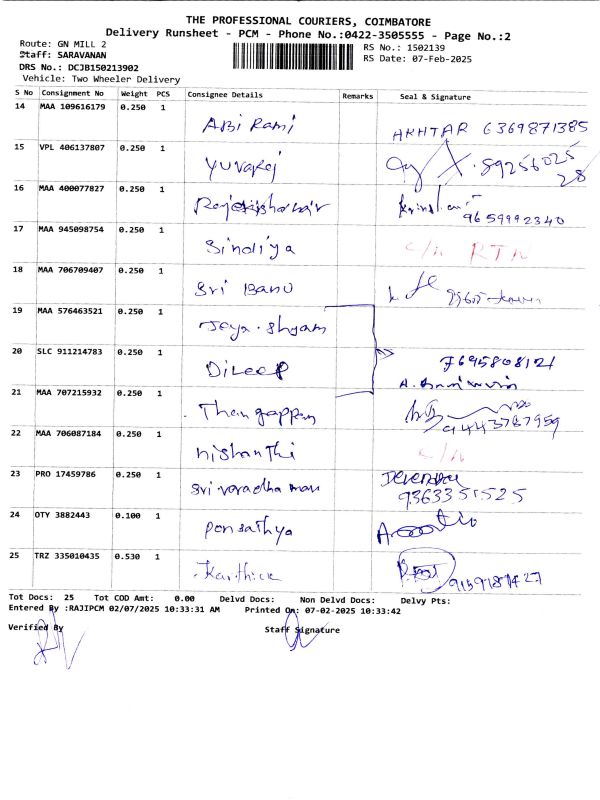 THE PROFESSIONAL COURIERS, COIMBATORE
Delivery Runsheet - PCM - Phone No.:0422-3505555 - Page No.:2
Route: GN MILL 2
RS No.: 1502139
Staff: SARAVANAN
RS Date: 07-Feb-2025
DRS No.: DCJB150213902
Vehicle: Two Wheeler Delivery
S No Consignment No Weight PCS Consignee Details Remarks Seal & Signature
14 MAA 109616179 0.250 1
Abi Rami AKHTAR 6369871385
15 VPL 406137807 0.250 1
Yuvaraj 89256025
28
16 MAA 400077827 0.250 1
9659992340
17 MAA 945098754 0.250 1
Sindiya C/n RTN
18 MAA 706709407 0.250 1
Sri Banu
19 MAA 576463521 0.250 1
Jeya.Shyam
20 SLC 911214783 0.250 1
Dileep 7695808121
21 MAA 707215932 0.250 1
Thangappan 9443787959
22 MAA 706087184 0.250 1
Nishanthi C/n
23 PRO 17459786 0.250 1
Sri varadha man 9363351525
24 OTY 3882443 0.100 1
Ponsathya
25 TRZ 335010435 0.530 1
Karthick
Tot Docs: 25 Tot COD Amt: 0.00 Delvd Docs: Non Delvd Docs: Delvy Pts:
Entered By :RAJIPCM 02/07/2025 10:33:31 AM Printed On: 07-02-2025 10:33:42
Verified By Staff Signature